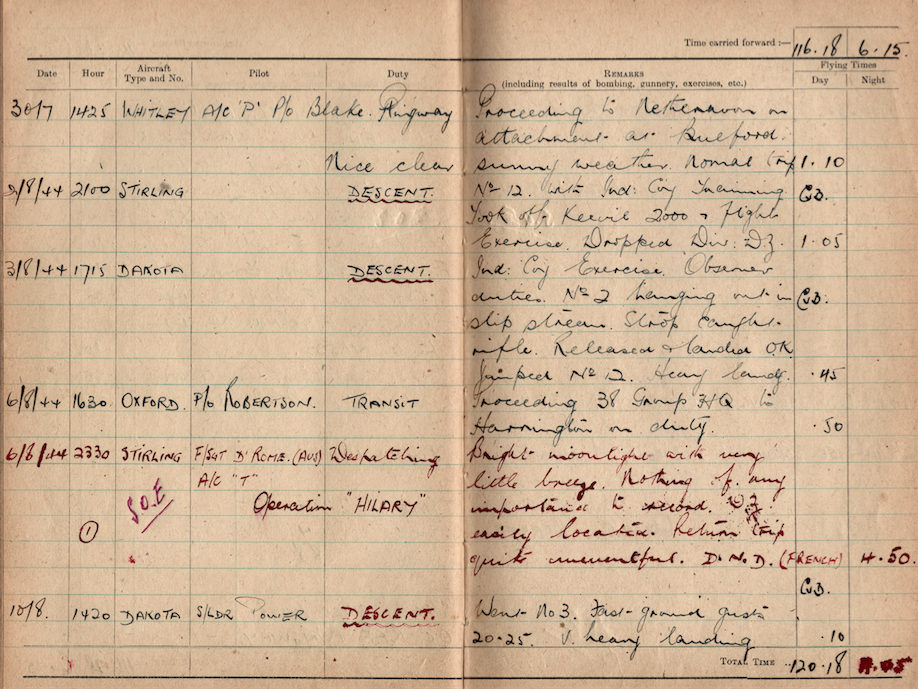 Time carried forward :— 116.18 6.15
Flying Times
Date Hour Aircraft Type and No. Pilot Duty REMARKS (including results of bombing, gunnery, exercises, etc.) Day Night
30/7 1425 WHITLEY A/C 'P' P/o Blake. Ringway Proceeding to Netheravon on
attachment at Bulford.
Nice clear sunny weather. Normal trip 1.10
2/8/44 2100 STIRLING DESCENT. No 12. with Ind: Coy Training C.D.
Took off Keevil 2000 & Flight
Exercise. Dropped Div: D.Z. 1.05
3/8/44 1715 DAKOTA DESCENT. Ind: Coy Exercise. Observer
duties. No 2 hanging out in C.D.
slip stream. Strop caught
rifle. Released & landed OK
Jumped No 12. Heavy landg. .45
6/8/44 1630 OXFORD. P/o ROBERTSON. TRANSIT Proceeding 38 Group HQ to
Harrington on duty. .50
6/8/44 2330 STIRLING F/SGT D'ROME. (AUS) Despatching Bright moonlight with very
A/C "T" little breeze. Nothing of any
S.O.E Operation "HILARY" importance to record. D.Z
1 easily located. Return trip
quite uneventful. D.N.D. (FRENCH) 4.50.
C.D.
10/8. 1420 DAKOTA S/LDR POWER DESCENT. Went No 3. Fast ground gusts
20-25. V. heavy landing .10
TOTAL TIME 120.18